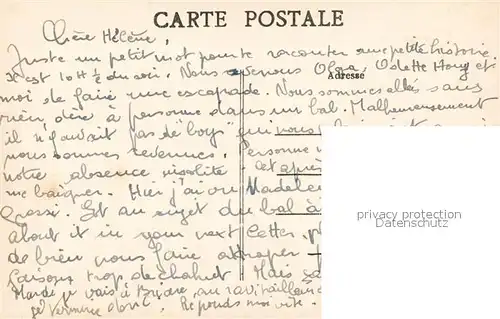 CARTE POSTALE
Chère Hélène,
Juste un petit mot pour te raconter une petite histoire
Il est 10 H ½ du soir. Nous revenons Olga, Odette Houy et
Adresse
moi de faire une escapade. Nous sommes allés sans
rien dire à personne dans un bal. Malheureusement
il n'y avait pas de "boy" qui nous
nous sommes revenues. Personne
notre absence insolite cet après
me baigner. Hier j'ai vu Madeleine
Et au sujet du bal à
about it in your next letter.
de bien nous faire attraper
faisons trop de chahut Mais
Mardi je vais à Briare, au ravitaillement
Réponds moi vite.
privacy protection
watermark